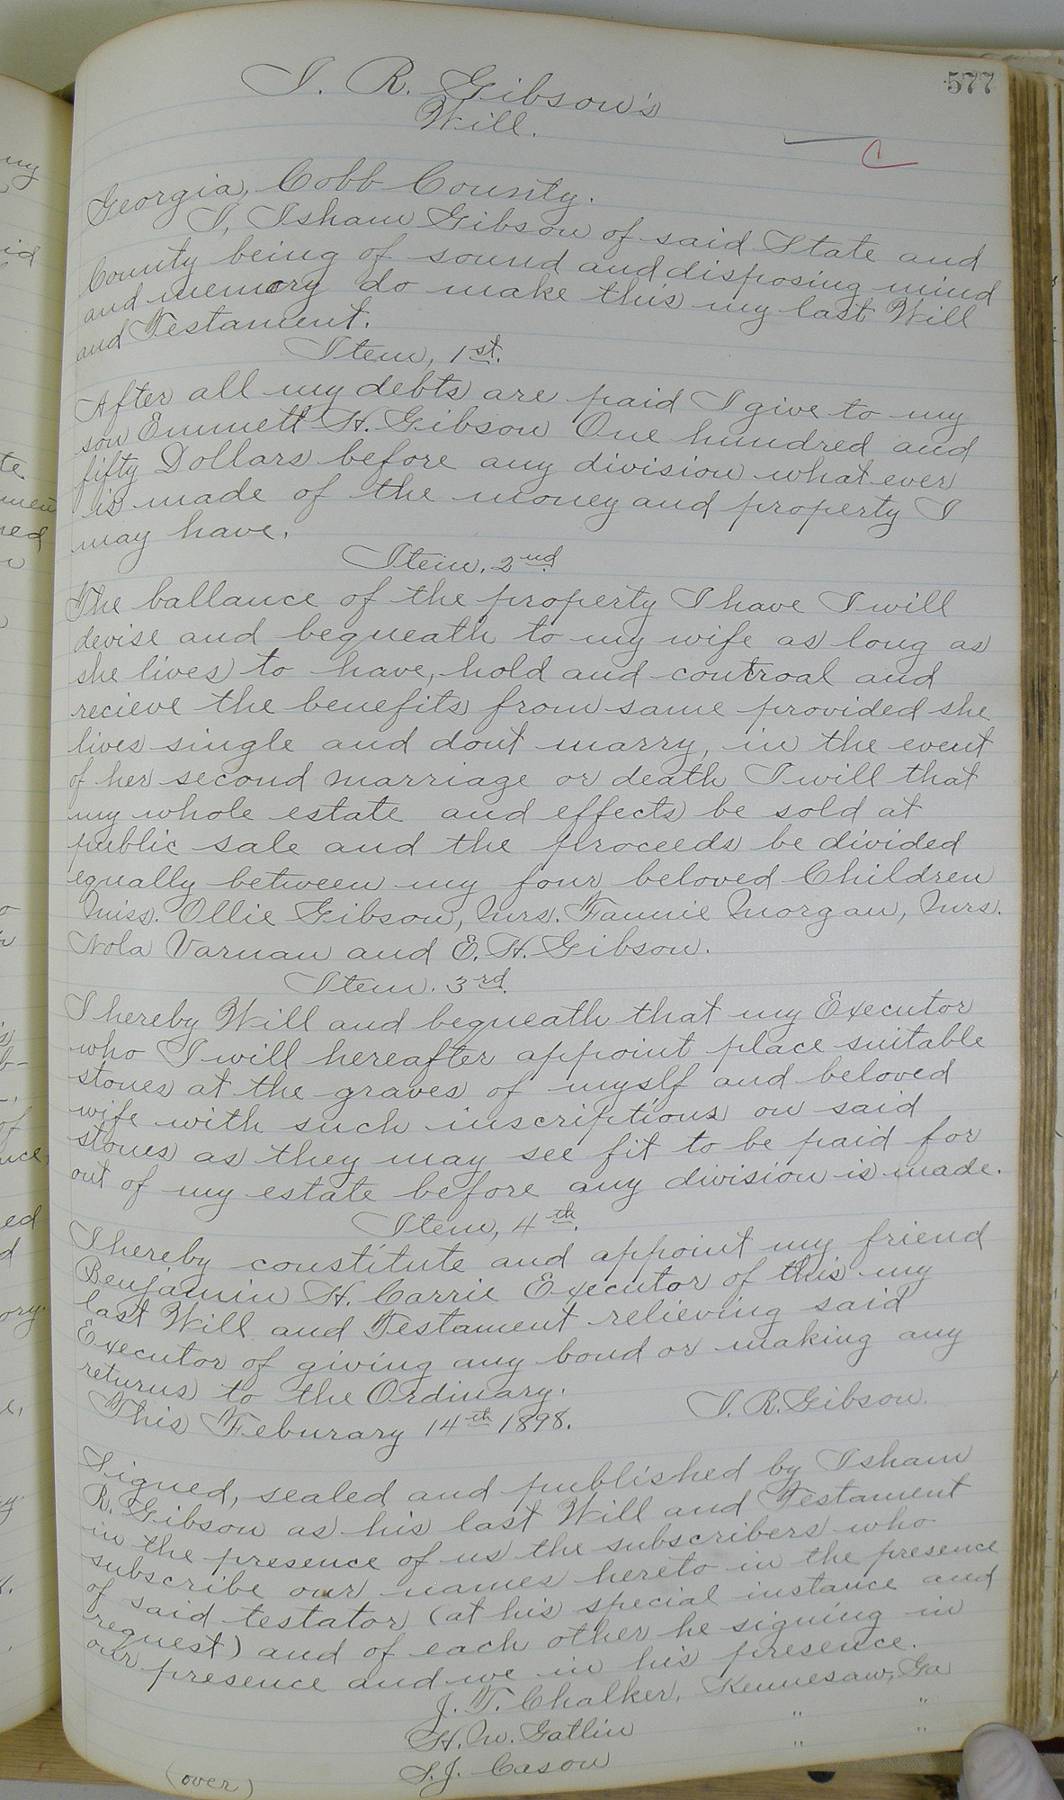 577
I. R. Gibson's
Will.
Georgia, Cobb County.
I, Isham Gibson of said State and
County being of sound and disposing mind
and memory do make this my last Will
and Testament.
Item, 1st.
After all my debts are paid I give to my
son Emmett H. Gibson One hundred and
fifty Dollars before any division what ever
is made of the money and property I
may have.
Item. 2nd.
The ballance of the property I have I will
devise and bequeath to my wife as long as
she lives to have, hold and controal and
recieve the benefits from same provided she
lives single and dont marry, in the event
of her second marriage or death I will that
my whole estate and effects be sold at
public sale and the proceeds be divided
equally between my four beloved Children
Miss. Ollie Gibson, Mrs. Fannie Morgan, Mrs.
Nola Varnan and E. H. Gibson.
Item. 3rd.
I hereby Will and bequeath that my Executor
who I will hereafter appoint place suitable
stones at the graves of myslf and beloved
wife with such inscriptions on said
stones as they may see fit to be paid for
out of my estate before any division is made.
Item, 4th.
I hereby constitute and appoint my friend
Benjamin H. Carrie Executor of this my
last Will and Testament relieving said
Executor of giving any bond or making any
returns to the Ordinary.
This Feburary 14th 1898. I. R. Gibson.
Signed, sealed and published by Isham
R. Gibson as his last Will and Testament
in the presence of us the subscribers who
subscribe our names hereto in the presence
of said testator (at his special instance and
request) and of each other he signing in
our presence and we in his presence.
J. T. Chalker, Kennesaw, Ga
H. W. Gatlin " "
S. J. Cason " "
(over)